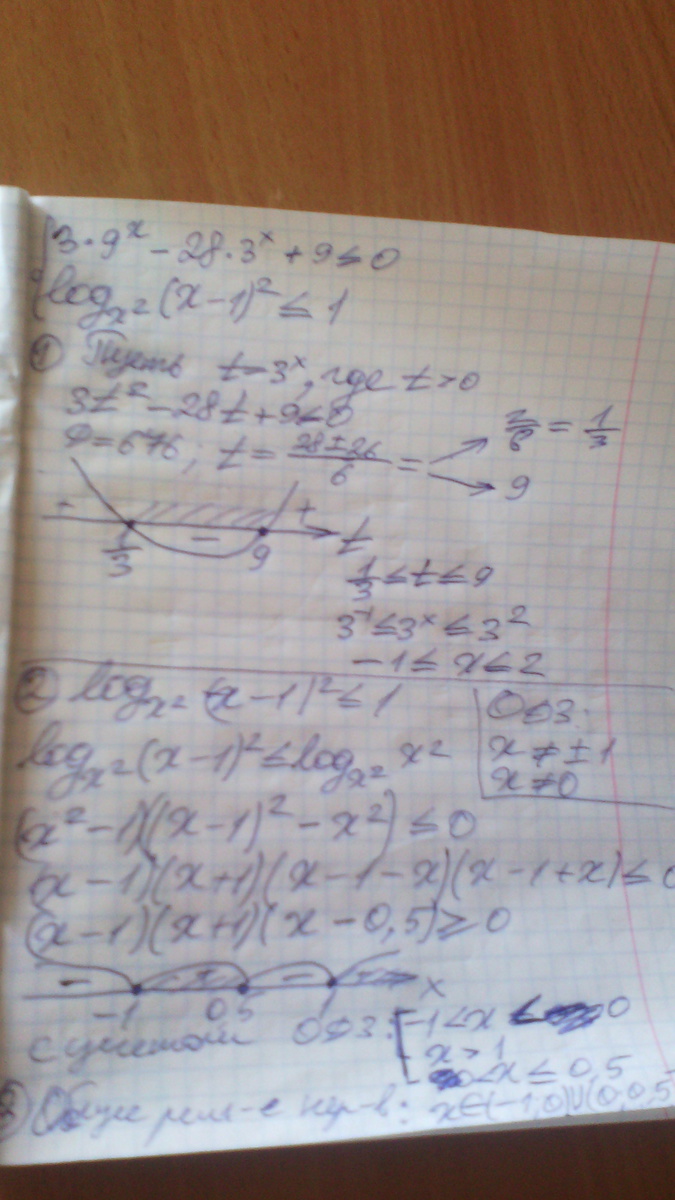 3·9^x − 28·3^x + 9 ≤ 0
log_{x²} (x−1)² ≤ 1
① Пусть t = 3^x, где t > 0
3t² − 28t + 9 ≤ 0
D = 676; t = (28 ± 26)/6 = 2/6 = 1/3
9
+ − +
1/3 9 t
1/3 ≤ t ≤ 9
3^{-1} ≤ 3^x ≤ 3²
−1 ≤ x ≤ 2
② log_{x²} (x−1)² ≤ 1
ОДЗ:
x ≠ ±1
x ≠ 0
log_{x²} (x−1)² ≤ log_{x²} x²
(x²−1)((x−1)² − x²) ≤ 0
(x−1)(x+1)(x−1−x)(x−1+x) ≤ 0
(x−1)(x+1)(x−0,5) ≥ 0
− + − + x
−1 0,5 1
с учетом ОДЗ: −1 < x < 0
x > 1
0 < x ≤ 0,5
③ Общее реш-е нер-в: x ∈ (−1,0)∪(0,0,5